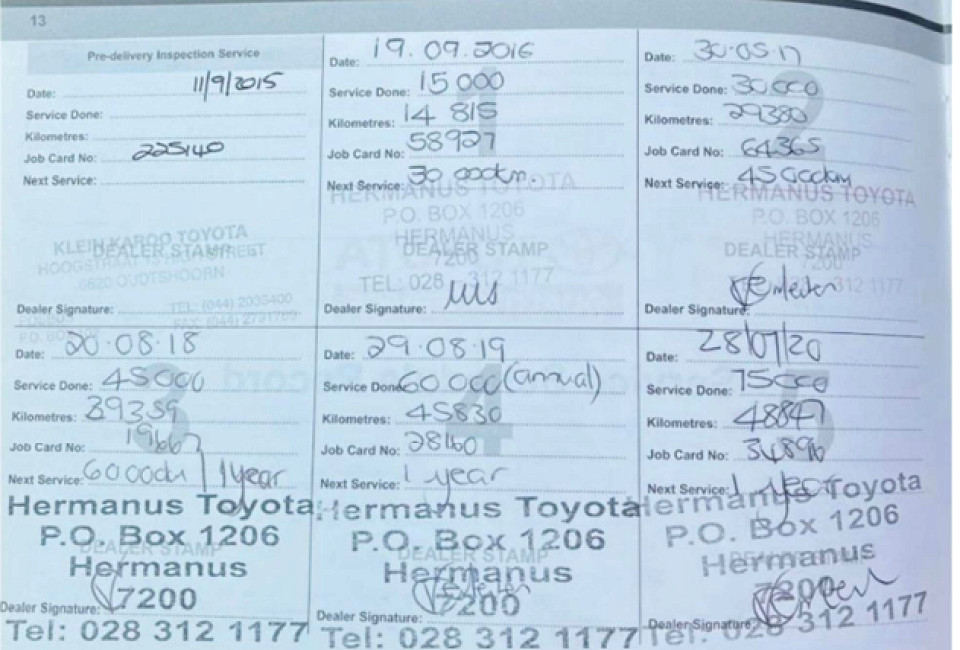 13
Pre-delivery Inspection Service
Date: 11/9/2015
Service Done:
Kilometres:
Job Card No: 225140
Next Service:
KLEIN KAROO TOYOTA
DEALER STAMP
6620 OUDTSHOORN
TEL: (044)
Dealer Signature:
Date: 19.09.2016
Service Done: 15 000
Kilometres: 14 815
Job Card No: 58927
Next Service: 30 000km.
HERMANUS TOYOTA
P.O. BOX 1206
HERMANUS
DEALER STAMP
7200
TEL: 028 312 1177
Dealer Signature:
Date: 30.05.17
Service Done: 30 000
Kilometres: 29380
Job Card No: 64365
Next Service: 45 000km
HERMANUS TOYOTA
P.O. BOX 1206
HERMANUS
DEALER STAMP
7200
312 1177
Dealer Signature:
Date: 20.08.18
Service Done: 45000
Kilometres: 39359
Job Card No:
Next Service: 60000km / 1 year
Hermanus Toyota
P.O. Box 1206
DEALER STAMP
Hermanus
7200
Dealer Signature:
Tel: 028 312 1177
Date: 29.08.19
Service Done: 60 000 (annual)
Kilometres: 45830
Job Card No: 28160
Next Service: 1 year
Hermanus Toyota
P.O. Box 1206
DEALER STAMP
Hermanus
7200
Dealer Signature:
Tel: 028 312 1177
Date: 28/07/20
Service Done: 75000
Kilometres: 48847
Job Card No: 34896
Next Service: 1 year
Hermanus Toyota
P.O. Box 1206
Hermanus
7200
Dealer Signature:
Tel: 028 312 1177